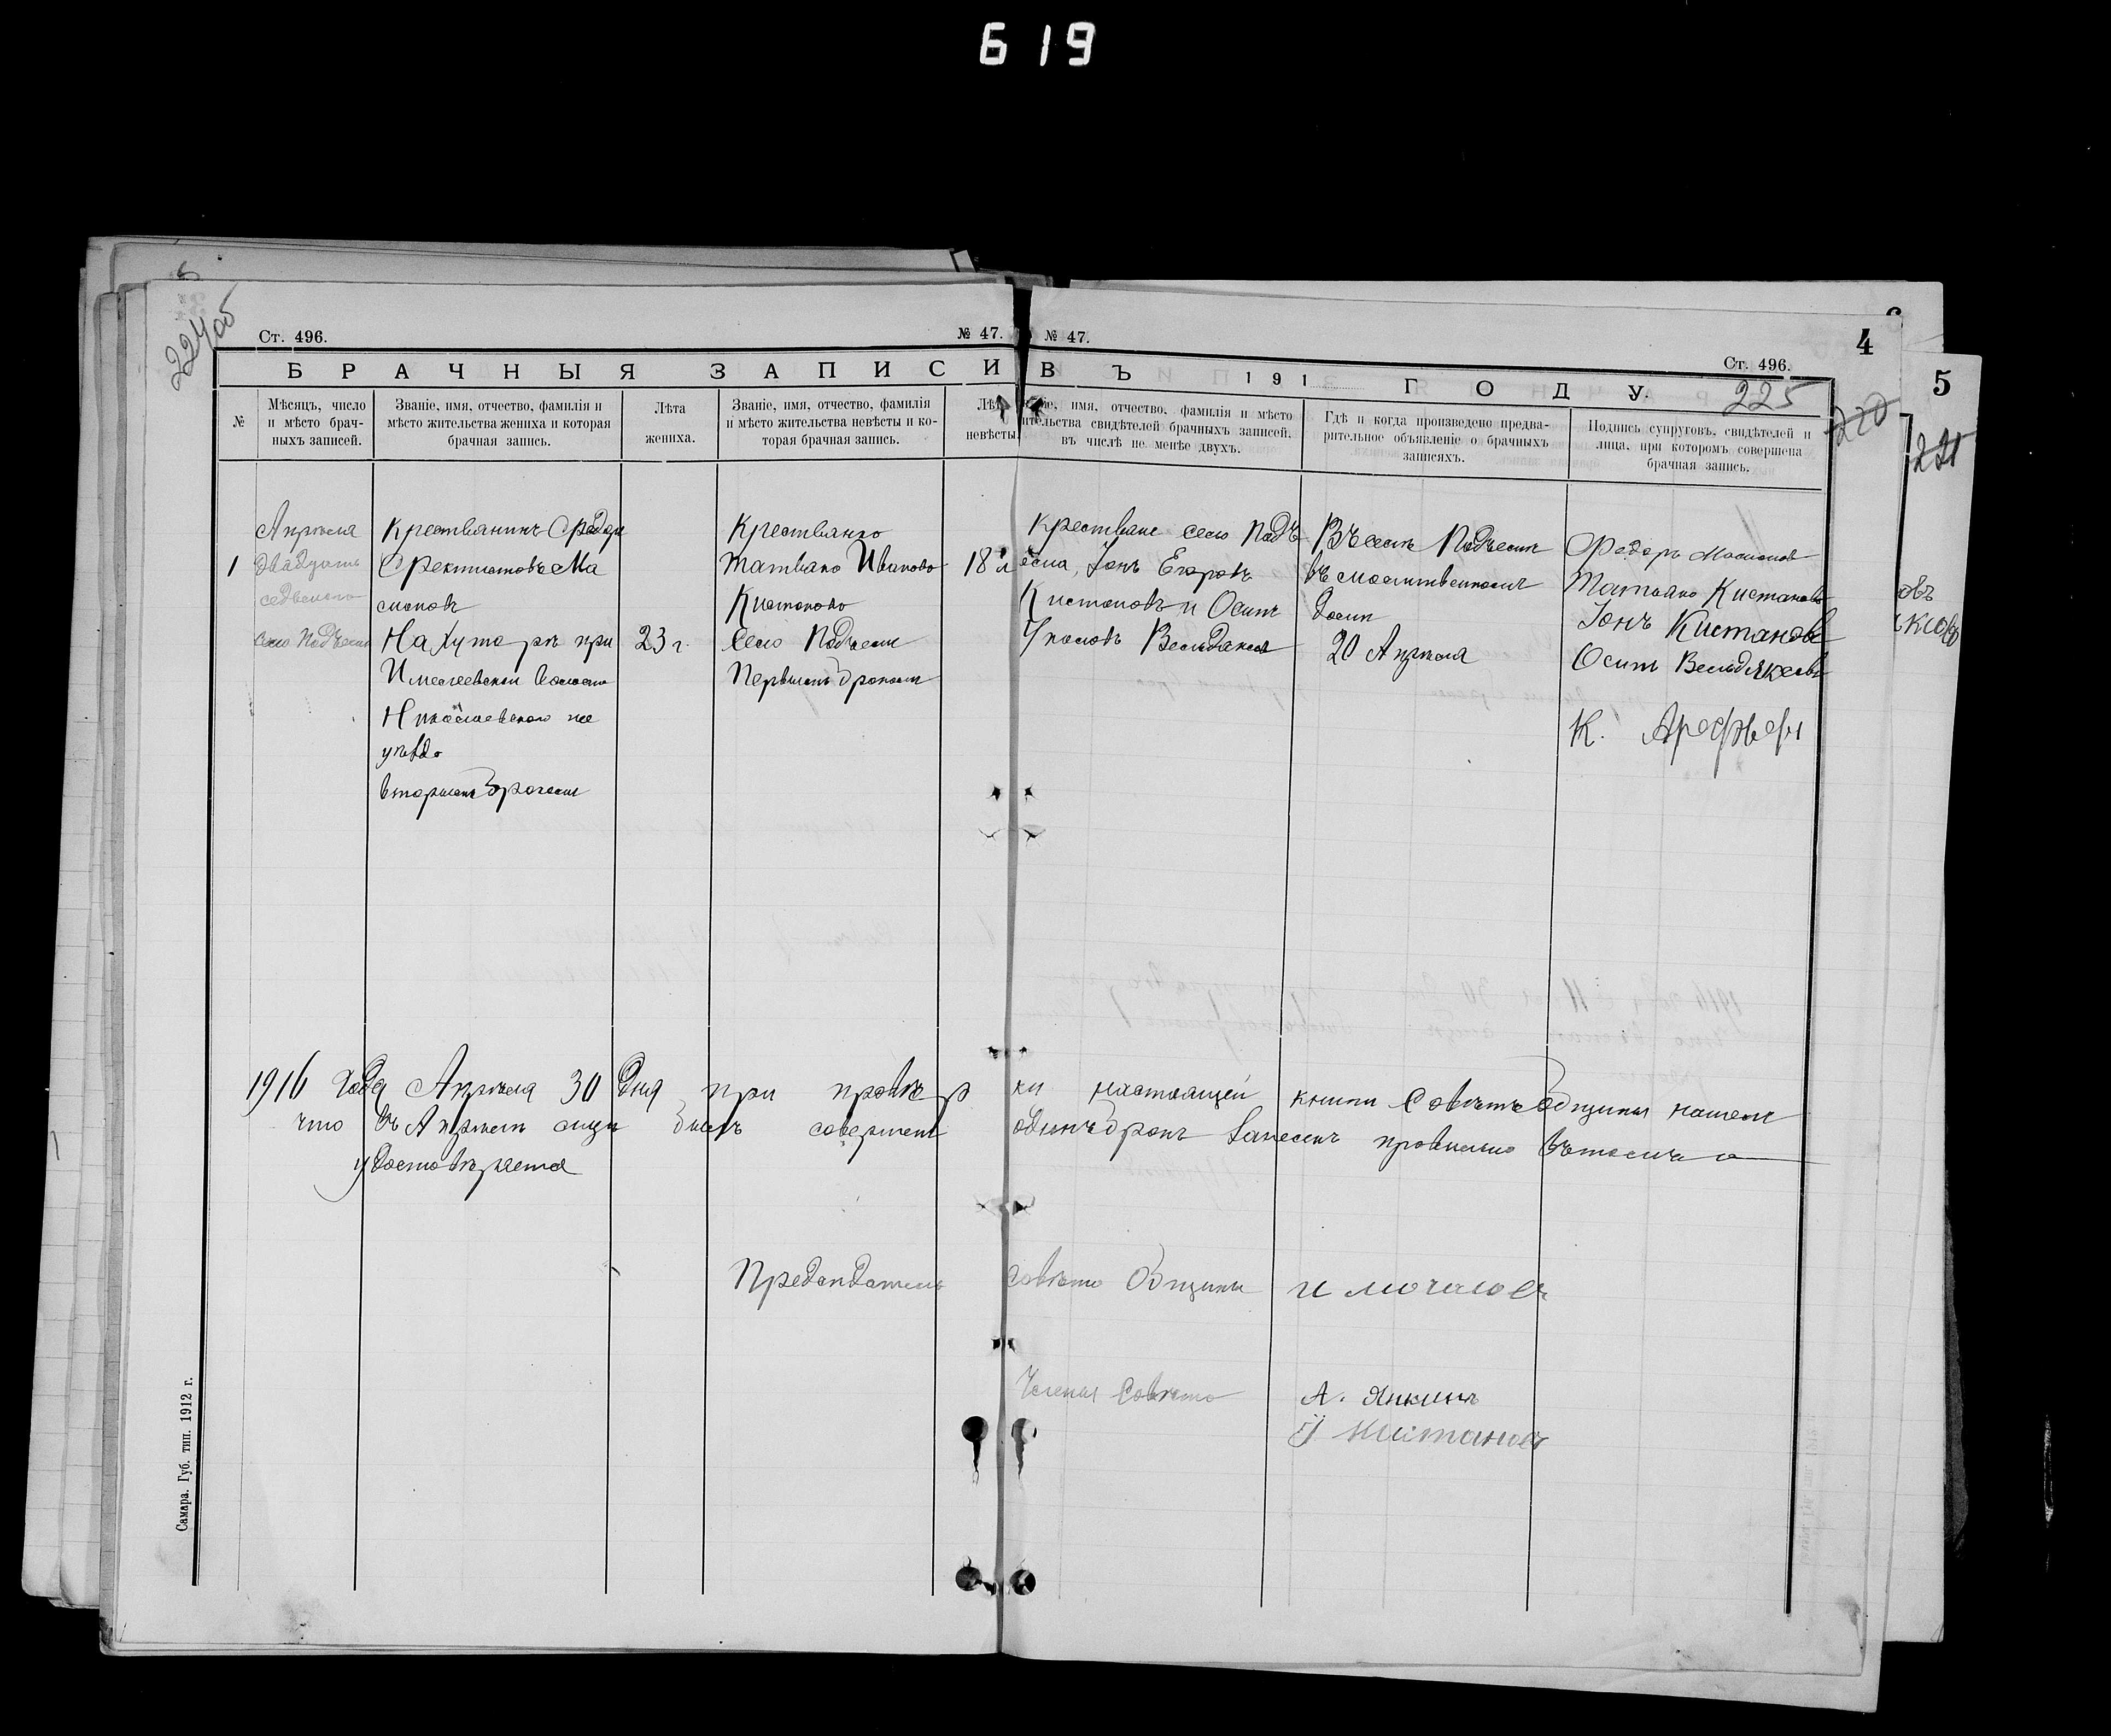 619
224об
Ст. 496.
№ 47.
№ 47.
Ст. 496.
4
5
БРАЧНЫЯ ЗАПИСИ ВЪ 191 ГОДУ.
225
220
221
№
Мѣсяцъ, число
и мѣсто брач-
ныхъ записей.
Званіе, имя, отчество, фамилія и
мѣсто жительства жениха и которая
брачная запись.
Лѣта
жениха.
Званіе, имя, отчество, фамилія
и мѣсто жительства невѣсты и ко-
торая брачная запись.
Лѣта
невѣсты.
имя, отчество, фамилія и мѣсто
жительства свидѣтелей брачныхъ записей,
въ числѣ не менѣе двухъ.
Гдѣ и когда произведено предва-
рительное объявленіе о брачныхъ
записяхъ.
Подпись супруговъ, свидѣтелей и
лица, при которомъ совершена
брачная запись.
1
Апрѣля
двадцать
седьмого
село Подъем
Крестьянинъ Федор
Фектистовъ Ма
смоновъ
На Хуторѣ при
Имелеевской волости
Николаевского
уѣзда
вторымъ браком
23 г.
Крестьянко
Татьяно Иваново
Кистоново
Село Подъем
Первымъ браком
18 л
Крестьяне село Подъ
Іонъ Егоровъ
Кистоновъ и Осипъ
Въ селѣ Подъемѣ
въ молитвенномъ
доми
20 Апрѣля
Федоръ
Татьяно Кистаново
Іонъ Кистановъ
Осипъ Вельдяксовъ
К. Арефьев
овъ
1916 года Апрѣля 30 дня при провѣр
ки настоящей книги Совѣтъ Общины нашем
что въ Апрѣлѣ былъ совершен
одинъ бракъ занесенъ провильно въ томъ и
удостовѣряется
Председатель Совѣто Общины И мочалов
Члены Совѣто А. Янкинъ
Й Кистановъ
Самара. Губ. тип. 1912 г.